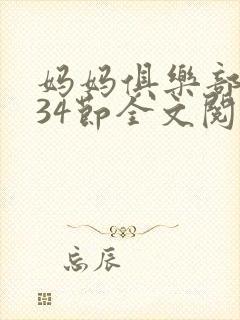 妈妈俱樂部
34節全文閱
忘辰